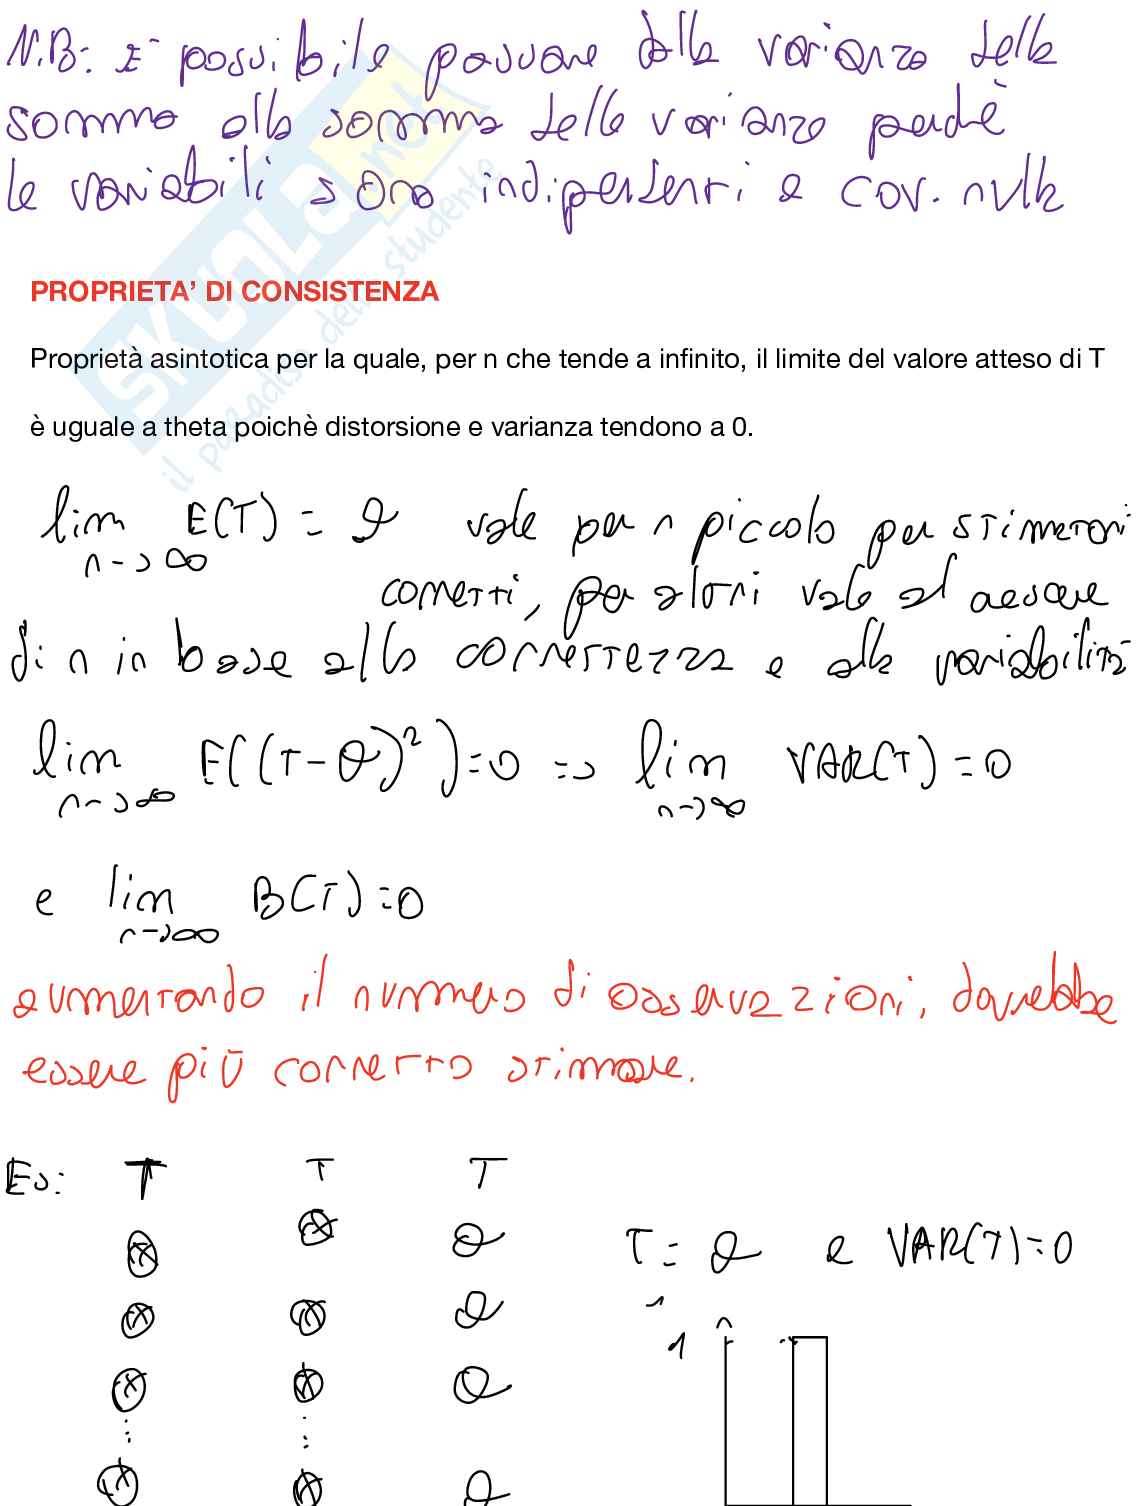 N.B: E' possibile passare dalla varianza della
somma alla somma delle varianze perchè
le variabili sono indipendenti e cov. nulla
SKUOLA.net
il paradiso dello studente
PROPRIETA' DI CONSISTENZA
Proprietà asintotica per la quale, per n che tende a infinito, il limite del valore atteso di T
è uguale a theta poichè distorsione e varianza tendono a 0.
lim E(T) = θ vale per n piccolo per stimatori
n->∞
corretti, per altri vale al crescere
di n in base alla correttezza e alla variabilità
lim E((T-θ)²)=0 => lim VAR(T)=0
n->∞ n->∞
e lim B(T)=0
n->∞
aumentando il numero di osservazioni, dovrebbe
essere più corretto stimare.
Es: T T T
T = θ e VAR(T)=0
θ
θ
θ
θ
1